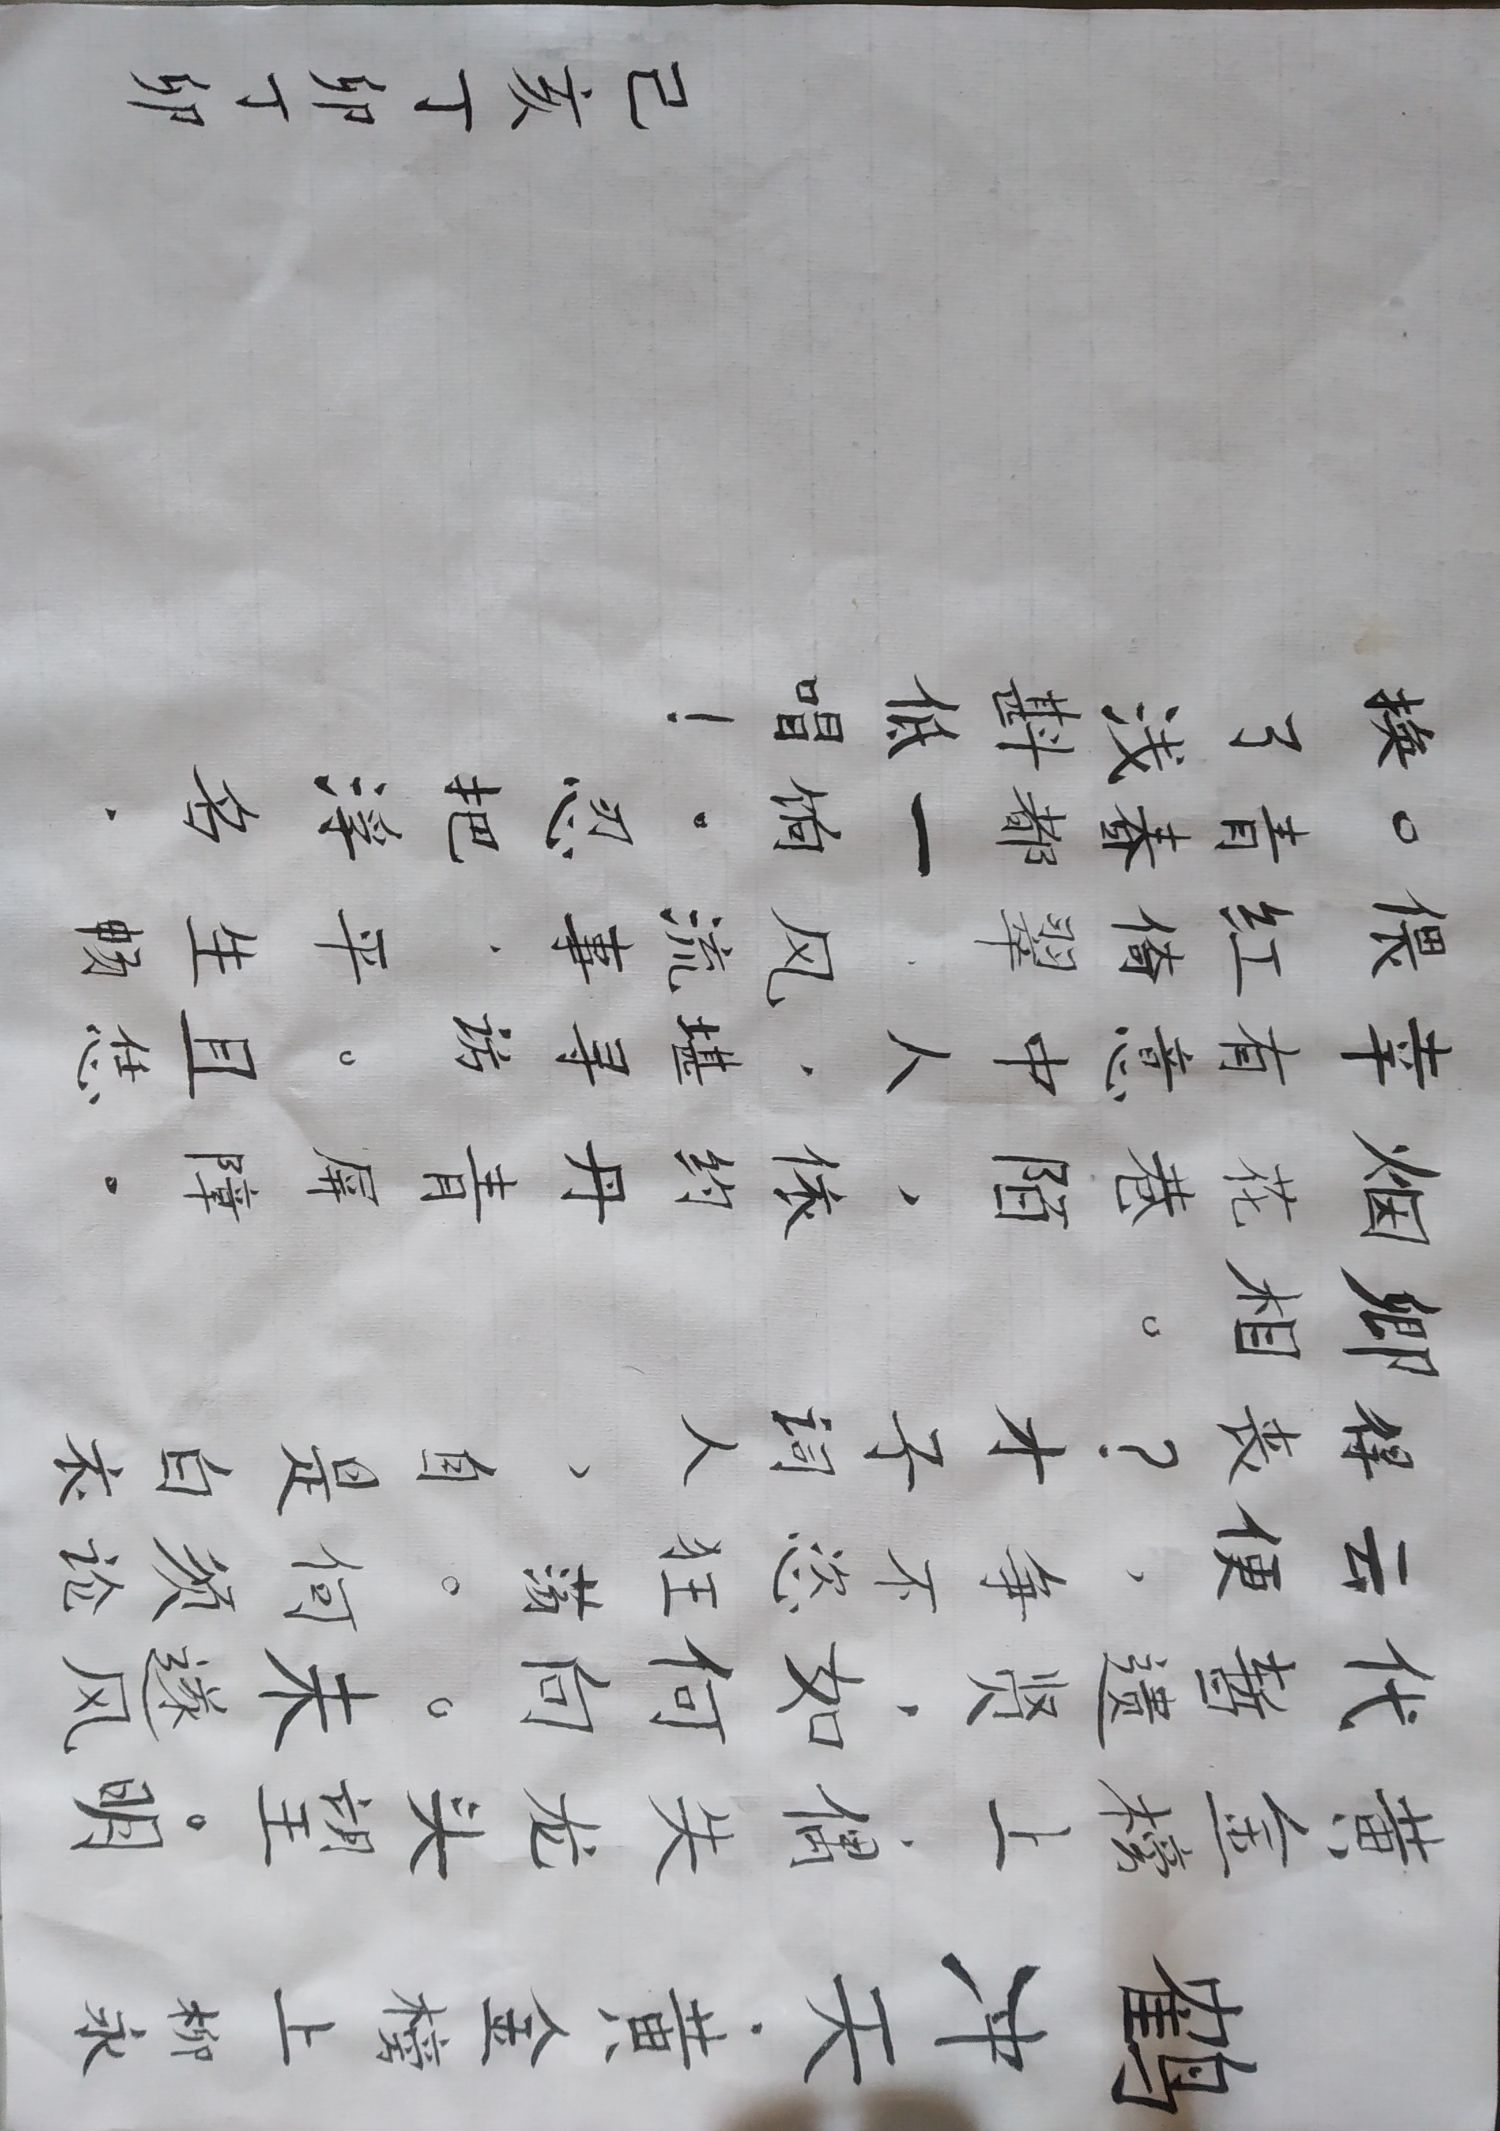 鹤冲天·黄金榜上 柳永
黄金榜上，偶失龙头望。明
代暂遗贤，如何向。未遂风
云便，争不恣狂荡。何须论
得丧？才子词人，自是白衣
卿相。
烟花巷陌，依约丹青屏障。
幸有意中人，堪寻访。且恁
偎红倚翠，风流事，平生畅
。青春都一饷。忍把浮名，
换了浅斟低唱！
己亥丁卯丁卯